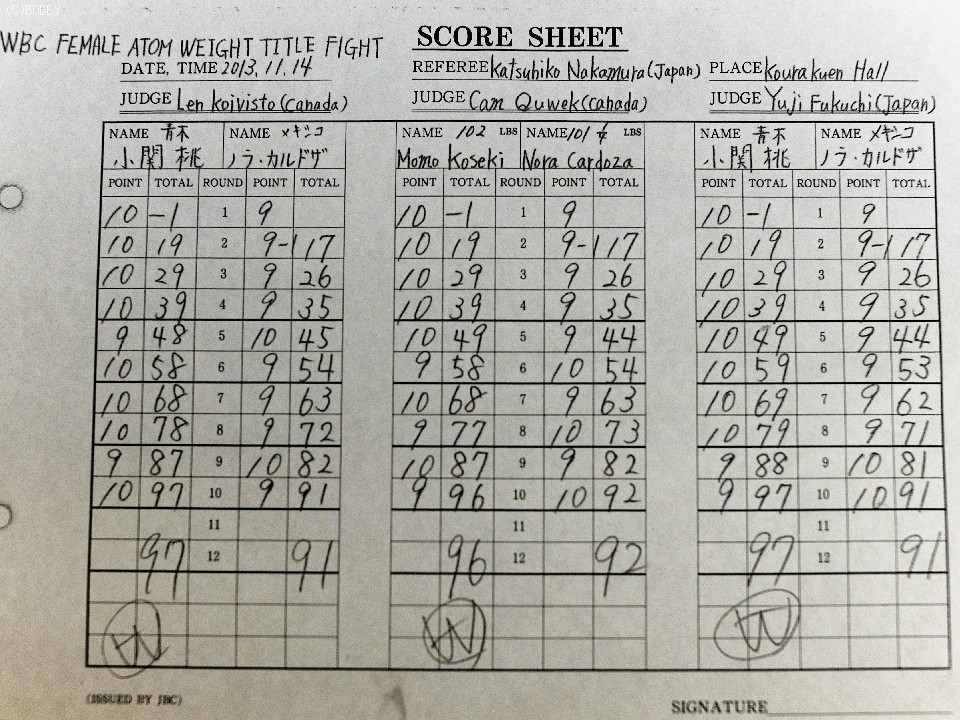 (C)BOBBY
WBC FEMALE ATOM WEIGHT TITLE FIGHT
SCORE SHEET
DATE, TIME 2013.11.14 REFEREE Katsuhiko Nakamura(Japan) PLACE Kourakuen Hall
JUDGE Len Koivisto(Canada) JUDGE Cam Quwek(Canada) JUDGE Yuji Fukuchi(Japan)
NAME 青木 NAME メキシコ NAME 102 LBS NAME 101 ¼ LBS NAME 青木 NAME メキシコ
小関 桃 ノラ・カルドザ Momo Koseki Nora Cardoza 小関 桃 ノラ・カルドザ
POINT TOTAL ROUND POINT TOTAL POINT TOTAL ROUND POINT TOTAL POINT TOTAL ROUND POINT TOTAL
10 -1 1 9 10 -1 1 9 10 -1 1 9
10 19 2 9-1 17 10 19 2 9-1 17 10 19 2 9-1 17
10 29 3 9 26 10 29 3 9 26 10 29 3 9 26
10 39 4 9 35 10 39 4 9 35 10 39 4 9 35
9 48 5 10 45 10 49 5 9 44 10 49 5 9 44
10 58 6 9 54 9 58 6 10 54 10 59 6 9 53
10 68 7 9 63 10 68 7 9 63 10 69 7 9 62
10 78 8 9 72 9 77 8 10 73 10 79 8 9 71
9 87 9 10 82 10 87 9 9 82 9 88 9 10 81
10 97 10 9 91 9 96 10 10 92 9 97 10 10 91
11 11 11
97 12 91 96 12 92 97 12 91
W W W
(ISSUED BY JBC) SIGNATURE